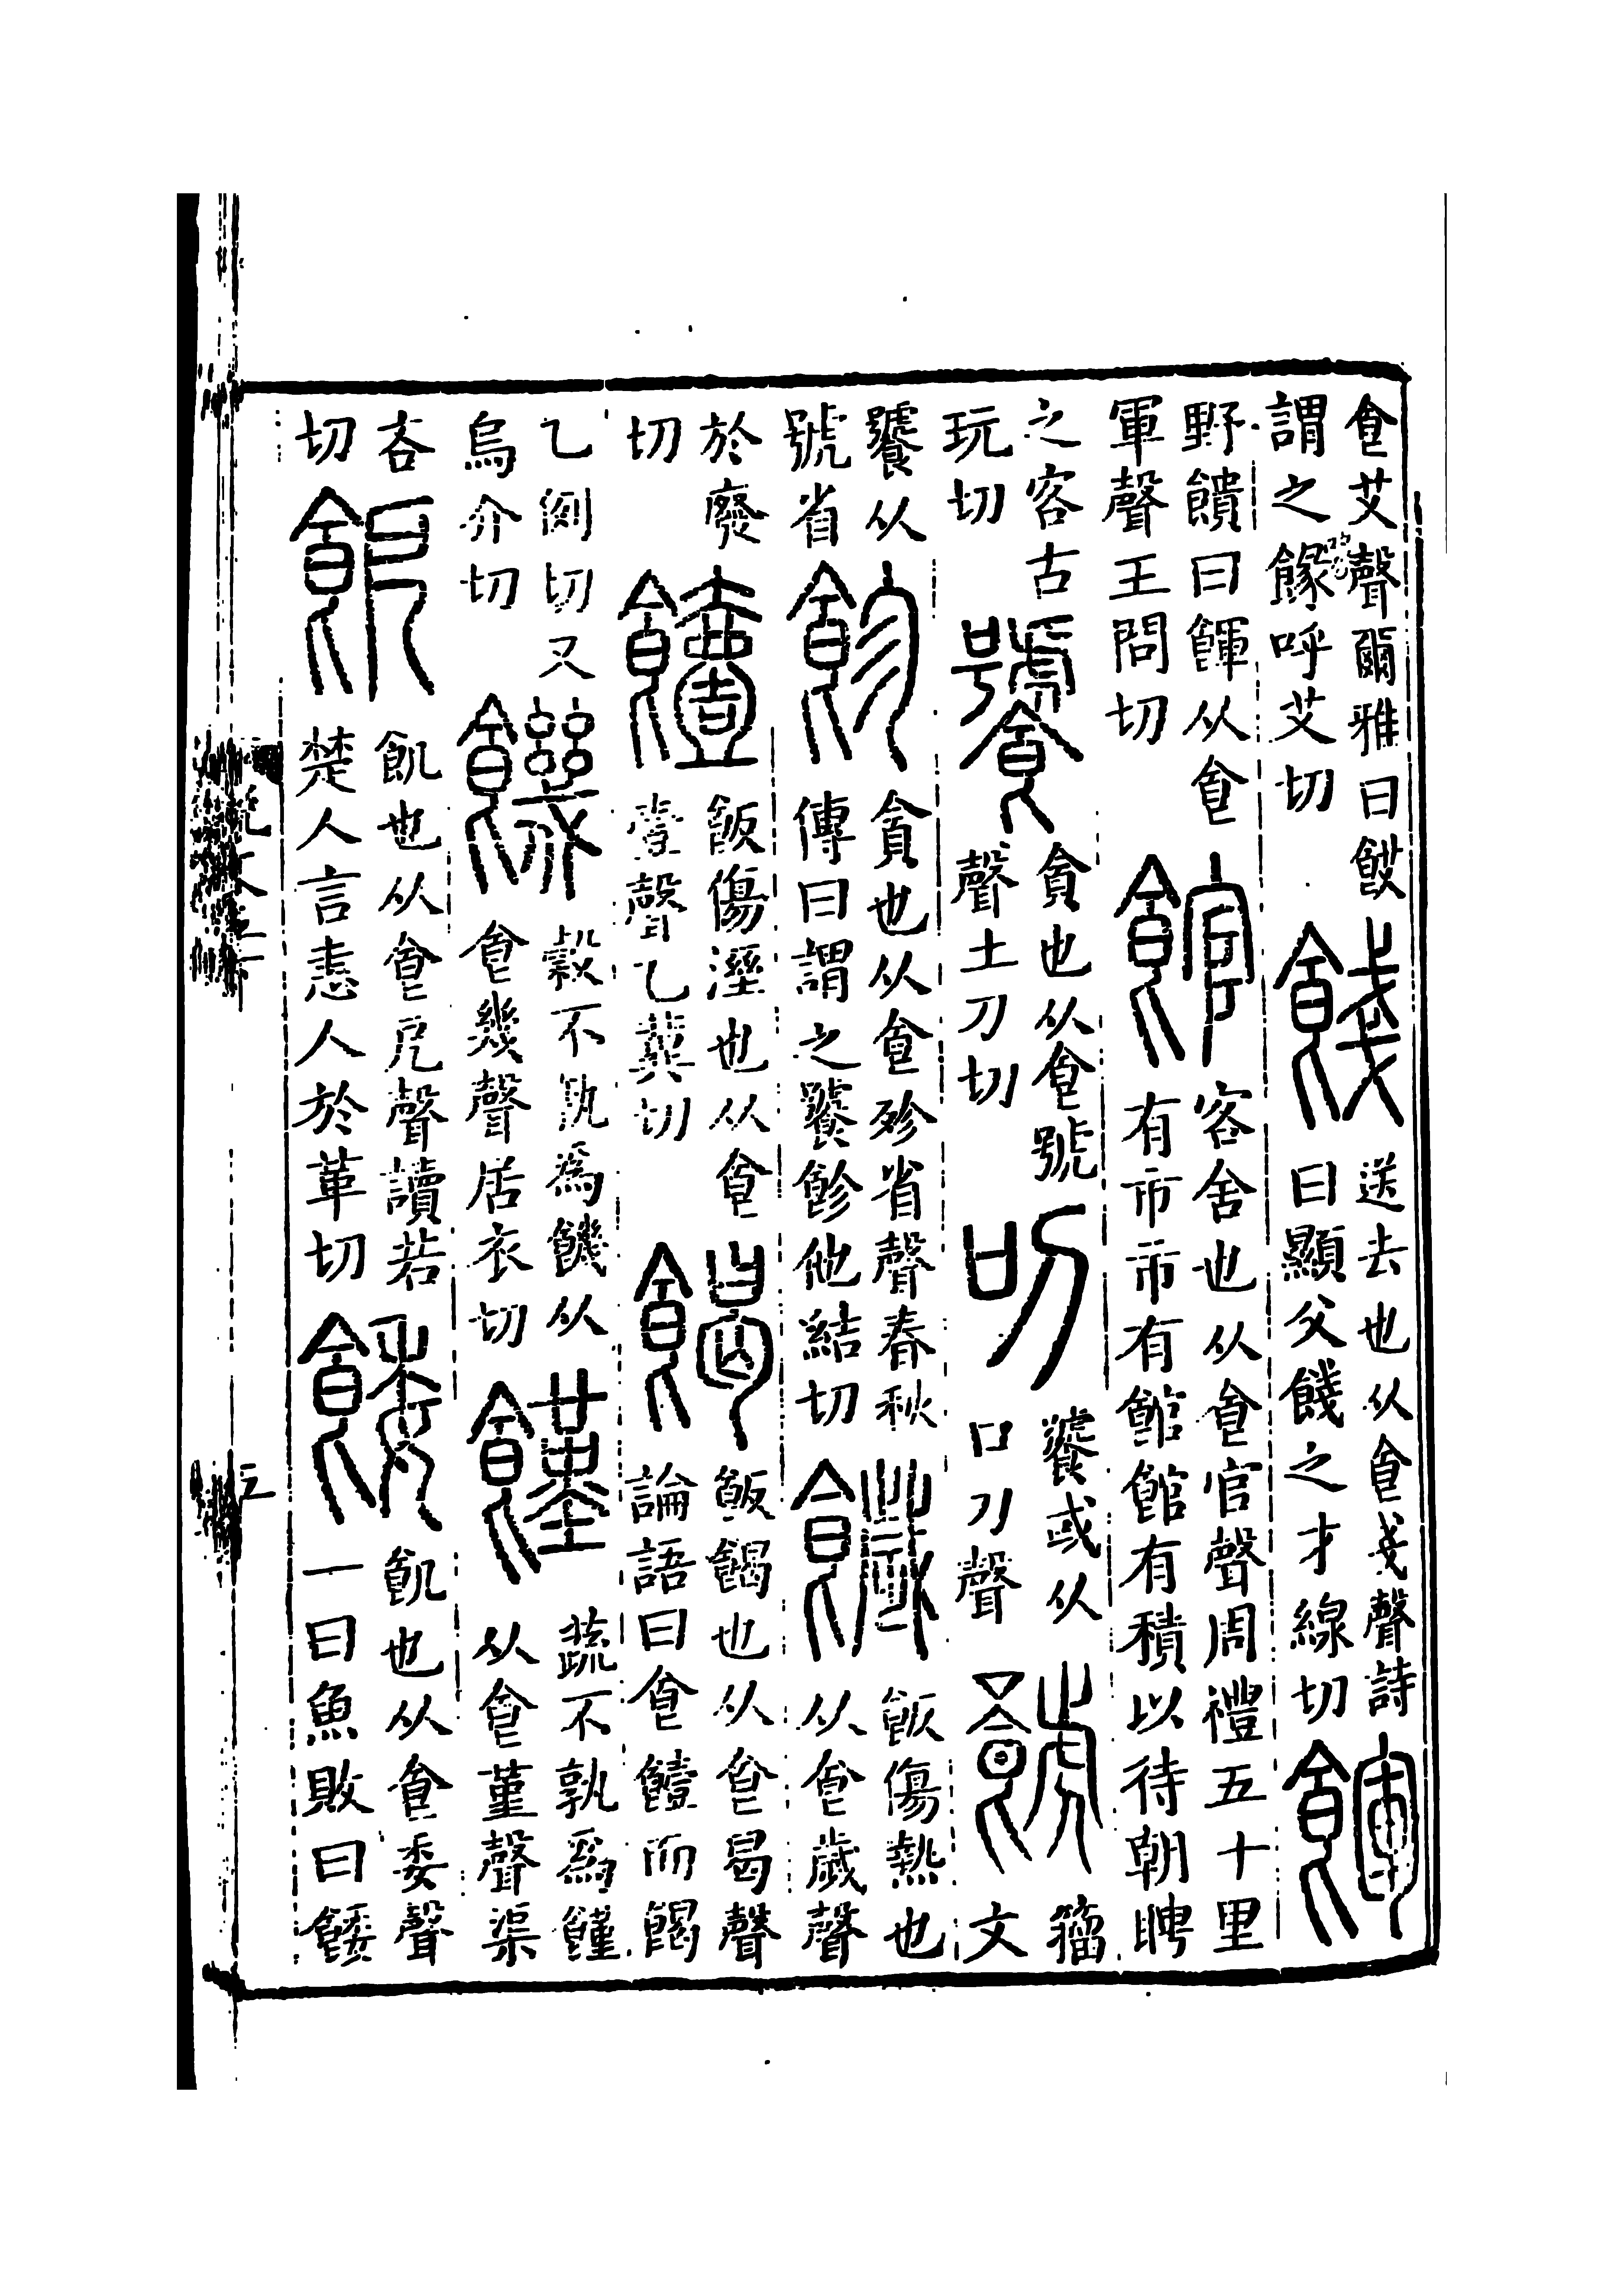 食艾聲爾雅曰餀謂之餯呼艾切 餞 送去也从食戔聲詩曰顯父餞之才線切 餫
野饋曰餫从食軍聲王問切 館 客舍也从食官聲周禮五十里有市市有館館有積以待朝聘
之客古玩切 饕 貪也从食號聲土刀切 叨 饕或从口刀聲 籀文
饕从號省 飻 貪也从食殄省聲春秋傳曰謂之饕飻他結切 饖 飯傷熱也从食歲聲
於廢切 饐 飯傷溼也从食壹聲乙冀切 餲 飯餲也从食曷聲論語曰食饐而餲
乙例切又烏介切 饑 穀不孰為饑从食幾聲居衣切 饉 蔬不孰爲饉从食堇聲渠
吝切 飢也从食戹聲讀若楚人言恚人於革切 餧 飢也从食委聲一曰魚敗曰餧